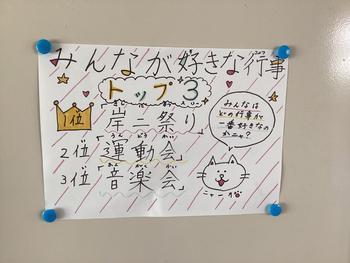 みんなが好きな行事
トップ3
1位 「岸二祭り」
2位 「運動会」
3位 「音楽会」
みんなは
どの行事が
一番好きなの
かニャ?